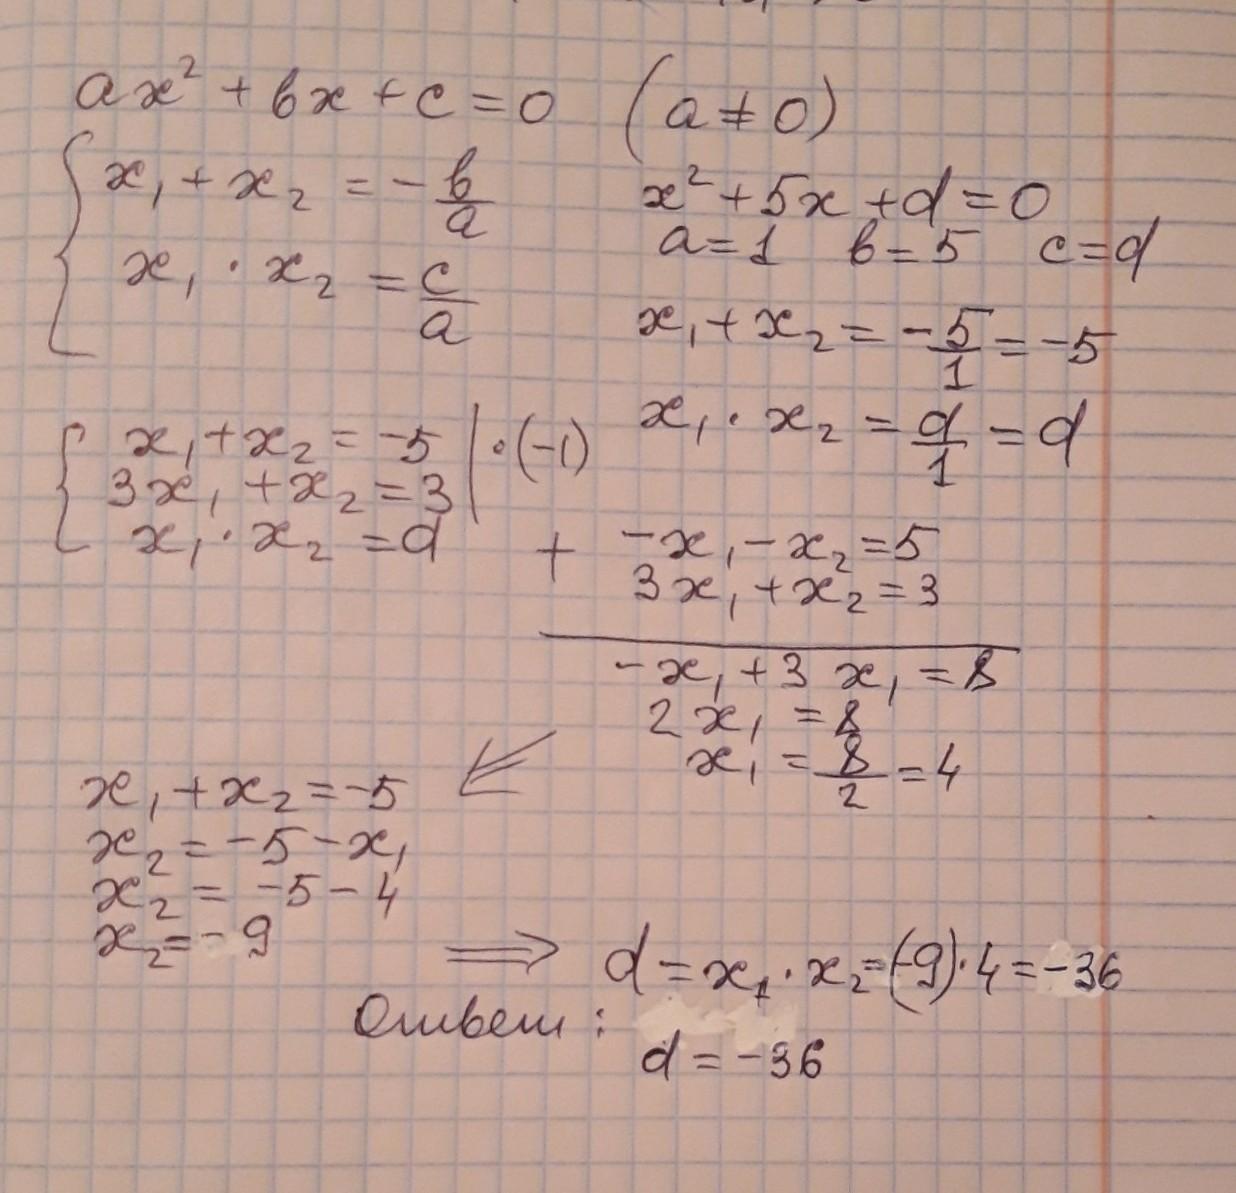 ax² + bx + c = 0 (a ≠ 0)
x₁ + x₂ = -b/a
x₁ · x₂ = c/a
x² + 5x + d = 0
a = 1 b = 5 c = d
x₁ + x₂ = -5/1 = -5
x₁ · x₂ = d/1 = d
x₁ + x₂ = -5 | · (-1)
3x₁ + x₂ = 3
x₁ · x₂ = d
+ -x₁ - x₂ = 5
3x₁ + x₂ = 3
-x₁ + 3x₁ = 8
2x₁ = 8
x₁ = 8/2 = 4
x₁ + x₂ = -5
x₂ = -5 - x₁
x₂ = -5 - 4
x₂ = -9
⇒ d = x₁ · x₂ = (-9) · 4 = -36
Ответ:
d = -36